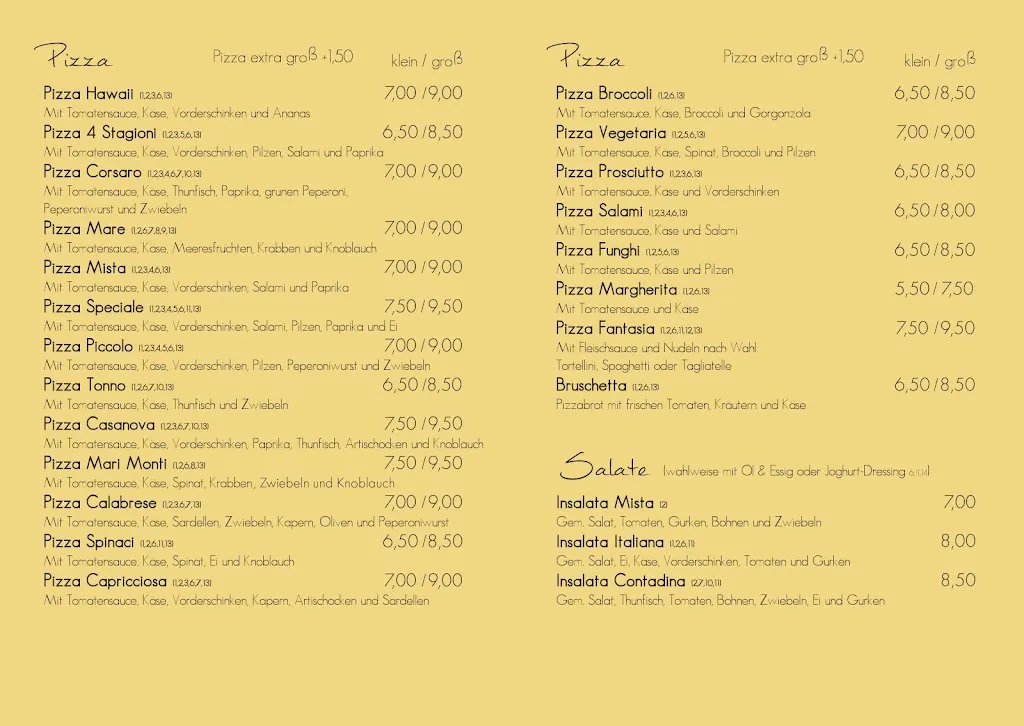 Pizza Pizza extra groß +1,50 klein / groß
Pizza Hawaii (1,2,3,6,13) 7,00 /9,00
Mit Tomatensauce, Käse, Vorderschinken und Ananas
Pizza 4 Stagioni (1,2,3,5,6,13) 6,50 /8,50
Mit Tomatensauce, Käse, Vorderschinken, Pilzen, Salami und Paprika
Pizza Corsaro (1,2,3,4,6,7,10,13) 7,00 /9,00
Mit Tomatensauce, Käse, Thunfisch, Paprika, grünen Peperoni,
Peperoniwurst und Zwiebeln
Pizza Mare (1,2,6,7,8,9,13) 7,00 /9,00
Mit Tomatensauce, Käse, Meeresfrüchten, Krabben und Knoblauch
Pizza Mista (1,2,3,4,6,13) 7,00 /9,00
Mit Tomatensauce, Käse, Vorderschinken, Salami und Paprika
Pizza Speciale (1,2,3,4,5,6,11,13) 7,50 /9,50
Mit Tomatensauce, Käse, Vorderschinken, Salami, Pilzen, Paprika und Ei
Pizza Piccolo (1,2,3,4,5,6,13) 7,00 /9,00
Mit Tomatensauce, Käse, Vorderschinken, Pilzen, Peperoniwurst und Zwiebeln
Pizza Tonno (1,2,6,7,10,13) 6,50 /8,50
Mit Tomatensauce, Käse, Thunfisch und Zwiebeln
Pizza Casanova (1,2,3,6,7,10,13) 7,50 /9,50
Mit Tomatensauce, Käse, Vorderschinken, Paprika, Thunfisch, Artischocken und Knoblauch
Pizza Mari Monti (1,2,6,8,13) 7,50 /9,50
Mit Tomatensauce, Käse, Spinat, Krabben, Zwiebeln und Knoblauch
Pizza Calabrese (1,2,3,6,7,13) 7,00 /9,00
Mit Tomatensauce, Käse, Sardellen, Zwiebeln, Kapern, Oliven und Peperoniwurst
Pizza Spinaci (1,2,6,11,13) 6,50 /8,50
Mit Tomatensauce, Käse, Spinat, Ei und Knoblauch
Pizza Capricciosa (1,2,3,6,7,13) 7,00 /9,00
Mit Tomatensauce, Käse, Vorderschinken, Kapern, Artischocken und Sardellen
Pizza Pizza extra groß +1,50 klein / groß
Pizza Broccoli (1,2,6,13) 6,50 /8,50
Mit Tomatensauce, Käse, Broccoli und Gorgonzola
Pizza Vegetaria (1,2,5,6,13) 7,00 /9,00
Mit Tomatensauce, Käse, Spinat, Broccoli und Pilzen
Pizza Prosciutto (1,2,3,6,13) 6,50 /8,50
Mit Tomatensauce, Käse und Vorderschinken
Pizza Salami (1,2,3,4,6,13) 6,50 /8,00
Mit Tomatensauce, Käse und Salami
Pizza Funghi (1,2,5,6,13) 6,50 /8,50
Mit Tomatensauce, Käse und Pilzen
Pizza Margherita (1,2,6,13) 5,50 / 7,50
Mit Tomatensauce und Käse
Pizza Fantasia (1,2,6,11,12,13) 7,50 /9,50
Mit Fleischsauce und Nudeln nach Wahl:
Tortellini, Spaghetti oder Tagliatelle
Bruschetta (1,2,6,13) 6,50 /8,50
Pizzabrot mit frischen Tomaten, Kräutern und Käse
Salate (wahlweise mit Öl & Essig oder Joghurt-Dressing 6,11,14)
Insalata Mista (2) 7,00
Gem. Salat, Tomaten, Gurken, Bohnen und Zwiebeln
Insalata Italiana (1,2,6,11) 8,00
Gem. Salat, Ei, Käse, Vorderschinken, Tomaten und Gurken
Insalata Contadina (2,7,10,11) 8,50
Gem. Salat, Thunfisch, Tomaten, Bohnen, Zwiebeln, Ei und Gurken